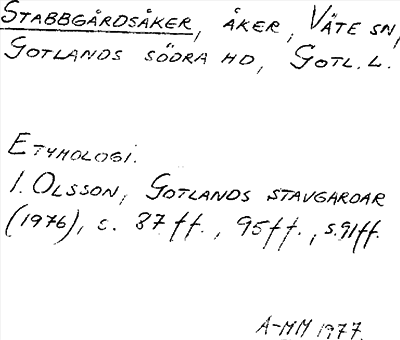 STABBGÅRDSÅKER, ÅKER, VÄTE SN,
GOTLANDS SÖDRA HD, GOTL. L.
ETYMOLOGI.
I. OLSSON, GOTLANDS STAVGARDAR
(1976), s. 87 ff., 95 ff., s. 91 ff.
A-MM 1977.